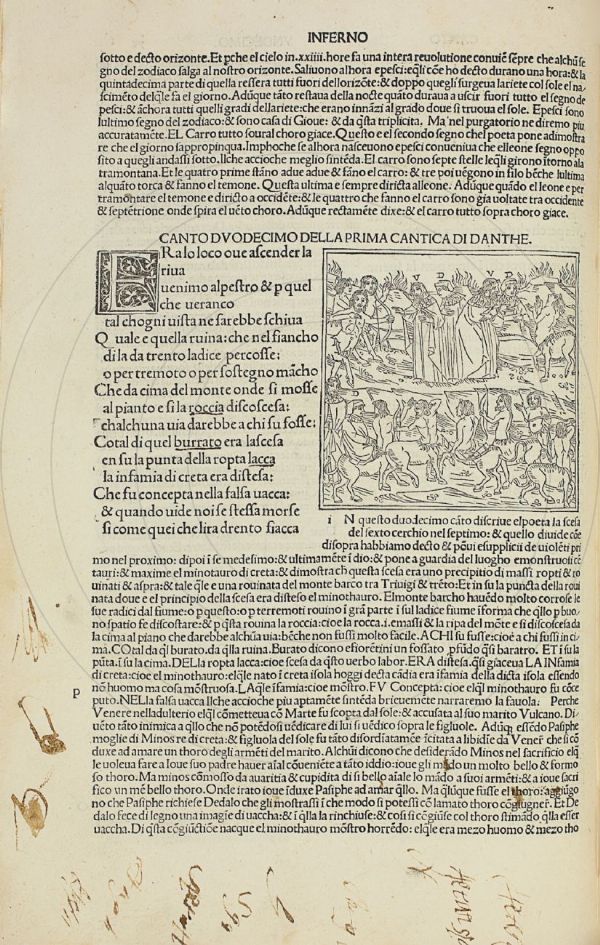 INFERNO
sotto e decto orizonte. Et pche el cielo in .xxiiii. hore fa una intera reuolutione conuiē sēpre che alchū se
gno del zodiaco salga al nostro orizonte. Saliuono alhora epesci: eqli cōe ho decto durano una hora: & la
quintadecima parte di quella ressera tutti fuori dellorizōte: & doppo quegli surgeua lariete col sole el na
scimēto delqle fa el giorno. Adūque tāto restaua della nocte quāto duraua a uscir fuori tutto el segno de
pesci: & āchora tutti quelli gradi dellariete: che erano innāzi al grado doue si truoua el sole. Epesci sono
lultimo segno del zodiaco: & sono casa di Gioue: & da qsta triplicita. Ma nel purgatorio ne diremo piu
accuratamēte. EL Carro tutto soural choro giace. Questo e el secondo segno chel poeta pone a dimostra
re che el giorno sappropinqua. Imphoche se alhora nasceuono epesci conueniua che elleone segno oppo
sito a quegli andassi sotto. Ilche accioche meglio sintēda. El carro sono septe stelle leqli girono itorno ala
tramontana. Et le quatro prime stāno adue adue & fāno el carro: & tre poi uēgono in filo bēche lultima
alquāto torca & fanno el temone. Questa ultima e sempre diricta alleone. Adūque quādo el leone e per
tramōtare el temone e diricto a occidēte: & le quattro che fanno el carro sono gia uoltate tra occidente
& septētrione onde spira el uēto choro. Adūque rectamēte dixe: & el carro tutto sopra choro giace.
CANTO DVODECIMO DELLA PRIMA CANTICA DI DANTHE.
ERa lo loco oue ascender la
riua
uenimo alpestro & p quel
che ueranco
tal chogni uista ne sarebbe schiua
Quale e quella ruina: che nel fiancho
di la da trento ladice percosse:
o per tremoto o per sostegno mācho
Che da cima del monte onde si mosse
al pianto e si la roccia discoscesa:
chalchuna uia darebbe a chi su fosse:
Cotal di quel burrato era lascesa
en su la punta della ropta lacca
la infamia di creta era distesa:
Che fu concepta nella falsa uacca:
& quando uide noi se stessa morse
si come quei che lira drento fiacca
V D V D
iN questo duodecimo cāto discriue el poeta la scesa
del sexto cerchio nel septimo: & quello diuide cōe
disopra habbiamo decto & pōui esupplicii de uiolēti pri
mo nel proximo: dipoi ī se medesimo: & ultimamēte ī dio: & pone a guardia del luogho emonstruoli cē
tauri: & maxime el minotauro di creta: & dimostra ch questa scesa era uno precipitio di massi ropti & ro
uinati & aspra: & tale qle e una rouinata del monte barco tra Triuigi & trēto: Et in su la pūcta della roui
nata doue e el principio della scesa era disteso el minothauro. El monte barcho hauēdo molto corrose le
sue radici dal fiume: o p questo: o p terremoti rouino ī grā parte ī sul ladice fiume īforma che qllo p buo
no spatio fe discostare: & p qsta rouina la roccia: cioe la rocca. i. emassi & la ripa del mōte e si discoscesa da
la cima al piano che darebbe alchūa uia: bēche non fussi molto facile. A CHI su fusse: cioe a chi fussi in ci
ma. COtal da ql burato. da qlla ruina. Burato dicono efiorētini un fossato pfūdo qsi baratro. ET ī su la
pūta. ī su la cima. DELla ropta lacca: cioe scesa da qsto uerbo labor. ERA distesa. qsi giaceua LA INfamia
di creta: cioe el minothauro: elqle nato ī creta isola hoggi decta cādia era ifamia della dicta isola essendo
nō huomo ma cosa mōstruosa. LAqle īfamia: cioe mōstro. FV Concepta: cioe elql minothauro fu cōce
p puto. NELla falsa uacca Ilche accioche piu aptamēte sintēda brieuemēte narraremo la fauola. Perche
Venere nelladulterio elql cōmetteua cō Marte fu scopta dal sole: & accusata al suo marito Vulcano. Di
uēto tāto inimica a qllo che nō potēdosi uēdicare di lui si uēdico sopra le figluole. Adūq essēdo Pasiphe
moglie di Minos re di creta: & figluola del sole fu tāto disordiatamēte īcitata a libidīe da Vener che si cō
duxe ad amare un thoro degli armēti del marito. Alchūi dicono che desiderādo Minos nel sacrificio elql
le uoleua fare a Ioue suo padre hauer aīal cōueniēte a tāto iddio: ioue gli mādo un molto bello & formo
so thoro. Ma minos cōmosso da auaritia & cupidita di si bello aīale lo mādo a suoi armēti: & a ioue sacri
fico un mē bello thoro. Onde irato ioue īduxe Pasiphe ad amar qllo. Ma qlūque fusse el thoro: aggiūgo
no che Pasiphe richiese Dedalo che gli mostrassi ī che modo si potessi cō lamato thoro cōgiugner. Et De
dalo fece di legno una imagie di uaccha: & ī qlla la rinchiuse: & cosi si cōgiūse col thoro stimādo qlla esser
uaccha. Di qsta cōgiūctiōe nacque el minothauro mōstro horrēdo: elqle era mezo huomo & mezo tho